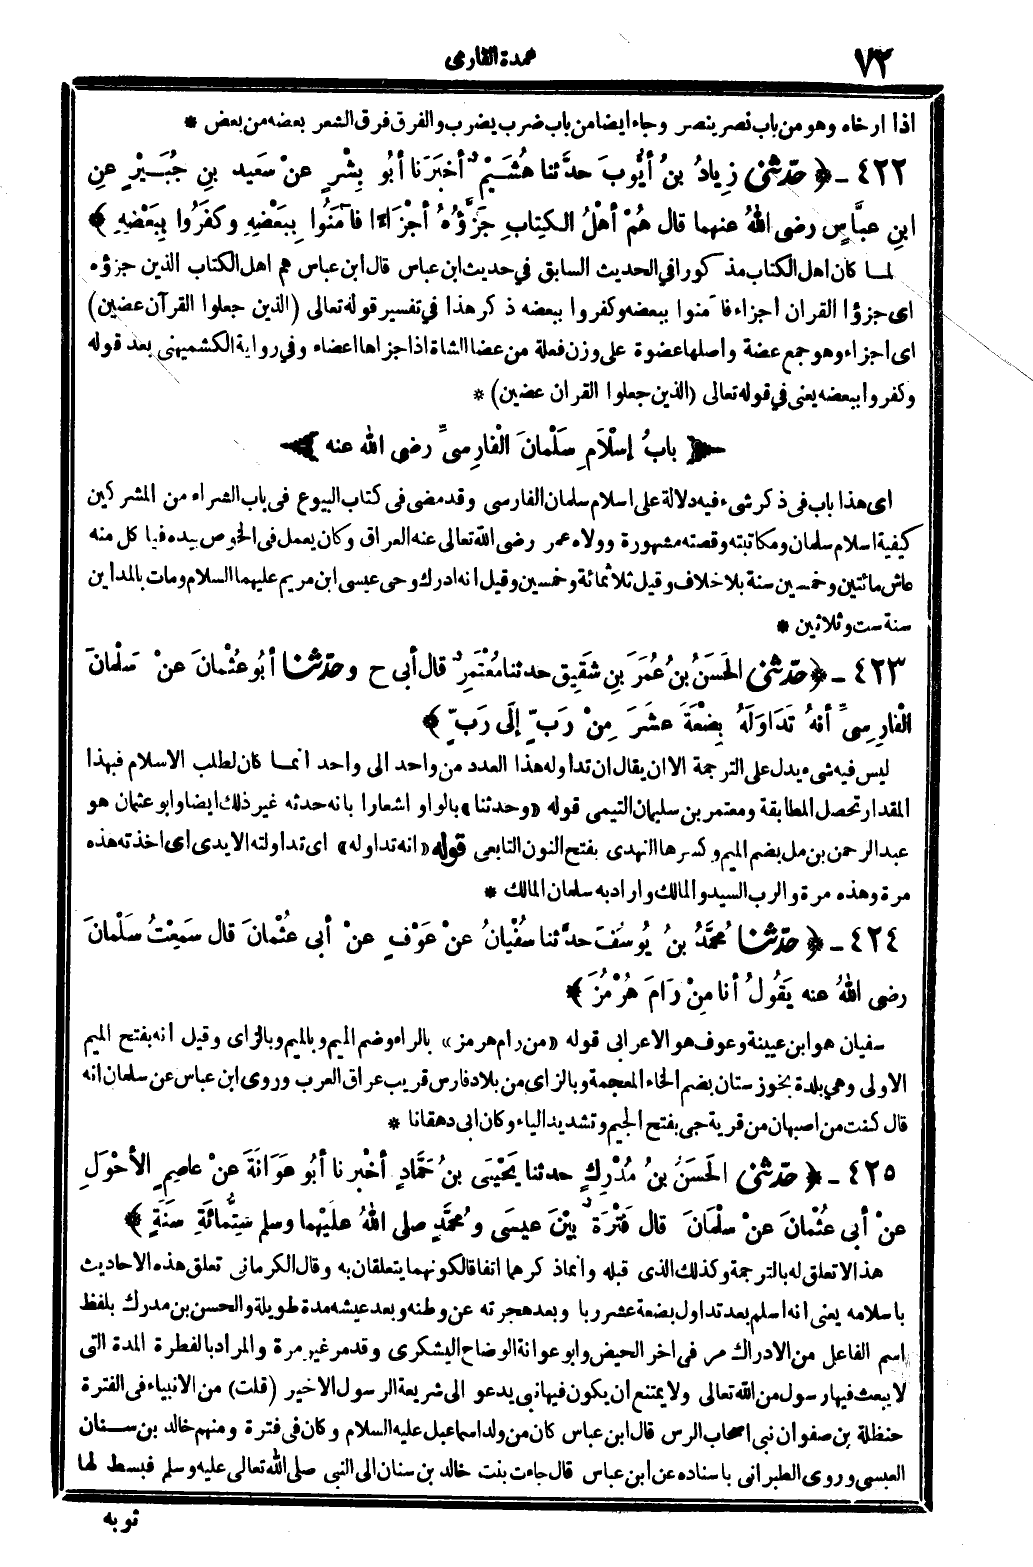 ٧٢
عمدة القارى
اذا ارخاه وهو من باب نصر ينصر وجاء ايضا من باب ضرب يضرب والفرق فرق الشعر بعضه من بعض *
٤٢٢ - ﴿ حدّثنى زِيادُ بنُ أيُّوبَ حدَّثنا هُشَيْمٌ أخبَرَنا أبُو بِشْرٍ عنْ سَعيدِ بنِ جُبَيْرٍ عنِ
ابنِ عبَّاسٍ رضى اللهُ عنهما قال هُمْ أهْلُ الكِتابِ جَزَّؤُهُ أجْزَاءًا فآمَنُوا بِبَعْضِهِ وكفَرُوا بِبَعْضِهِ ﴾
لما كان اهل الكتاب مذكورا فى الحديث السابق فى حديث ابن عباس قال ابن عباس هم اهل الكتاب الذين جزؤه
اى جزؤا القران أجزاء فآمنوا ببعضه وكفروا ببعضه ذكر هذا فى تفسير قوله تعالى (الذين جعلوا القرآن عضين)
اى اجزاء وهو جمع عضة واصلها عضوة على وزن فعلة من عضا الشاة اذا جزاها اعضاء وفى رواية الكشميهنى بعد قوله
وكفروا ببعضه يعنى فى قوله تعالى (الذين جعلوا القران عضين) *
﴿ بابُ إسْلاَمِ سَلْمانَ الْفارِسىِّ رضى الله عنه ﴾
اى هذا باب فى ذكر شىء فيه دلالة على اسلام سلمان الفارسى وقد مضى فى كتاب البيوع فى باب الشراء من المشركين
كيفية اسلام سلمان ومكاتبته وقصته مشهورة وولاه عمر رضى الله تعالى عنه العراق وكان يعمل فى الخوص بيده فيأكل منه
عاش مائتين وخمسين سنة بلا خلاف وقيل ثلاثمائة وخمسين وقيل انه ادرك وحى عيسى ابن مريم عليهما السلام ومات بالمداين
سنة ست وثلاثين *
٤٢٣ - ﴿ حدّثنى الحَسَنُ بنُ عُمَرَ بنِ شَقِيقٍ حدثنا مُعْتَمِرٌ قال أبى ح وحدّثنا أبُو عُثْمانَ عنْ سَلْمانَ
الْفارِسىِّ أنهُ تَدَاوَلَهُ بِضْعَةَ عشَرَ مِنْ رَبٍّ إلَى رَبٍّ ﴾
ليس فيه شىء يدل على الترجمة الا ان يقال ان تداوله هذا العدد من واحد الى واحد انما كان لطلب الاسلام فبهذا
المقدار تحصل المطابقة ومعتمر بن سليمان التيمى قوله «وحدثنا» بالواو اشعارا بانه حدثه غير ذلك ايضا وابو عثمان هو
عبد الرحمن بن مل بضم الميم وكسرها النهدى بفتح النون التابعى قوله «انه تداوله» اى تداولته الايدى اى اخذته هذه
مرة وهذه مرة والرب السيد والمالك واراد به سلمان المالك *
٤٢٤ - ﴿ حدّثنا مُحمَّدُ بنُ يُوسُفَ حدَّثنا سُفْيانُ عنْ عَوْفٍ عنْ أبى عُثْمانَ قال سَمِعْتُ سَلْمانَ
رضى اللهُ عنه يَقُولُ أنا مِنْ رَامَ هُرْمُزَ ﴾
سفيان هو ابن عيينة وعوف هو الاعرابى قوله «من رام هرمز» بالراء وضم الميم وبالميم وبالزاى وقيل انه بفتح الميم
الاولى وهى بلدة بخوزستان بضم الخاء المعجمة وبالزاى من بلاد فارس قريب عراق العرب وروى ابن عباس عن سلمان انه
قال كنت من اصبهان من قرية جى بفتح الجيم وتشديد الياء وكان ابى دهقانا *
٤٢٥ - ﴿ حدّثنى الحَسَنُ بنُ مُدْرِكٍ حدثنا يَحْيَى بنُ حَمَّادٍ أخْبرنا أبُو عَوَانَةَ عنْ عاصِمٍ الأحْوَلِ
عنْ أبى عُثْمانَ عنْ سلْمانَ قال فَتْرَةٌ بيْنَ عيسَى ومُحمَّدٍ صلى اللهُ عليْهما وسلم سِتُّمائَةِ سَنَةٍ ﴾
هذا لا تعلق له بالترجمة وكذلك الذى قبله وانما ذكرهما اتفاقا لكونهما يتعلقان به وقال الكرمانى تعلق هذه الاحاديث
باسلامه يعنى انه اسلم بعد تداول بضعة عشر ربا وبعد هجرته عن وطنه وبعد عيشه مدة طويلة والحسن بن مدرك بلفظ
اسم الفاعل من الادراك مر فى اخر الحيض وابو عوانة الوضاح اليشكرى وقد مر غير مرة والمراد بالفطرة المدة التى
لا يبعث فيها رسول من الله تعالى ولا يمتنع ان يكون فيها نبى يدعو الى شريعة الرسول الاخير (قلت) من الانبياء فى الفترة
حنظلة بن صفوان نبى اصحاب الرس قال ابن عباس كان من ولد اسماعيل عليه السلام وكان فى فترة ومنهم خالد بن سنان
العبسى وروى الطبرانى باسناده عن ابن عباس قال جاءت بنت خالد بن سنان الى النبى صلى الله تعالى عليه وسلم فبسط لها
ثوبه